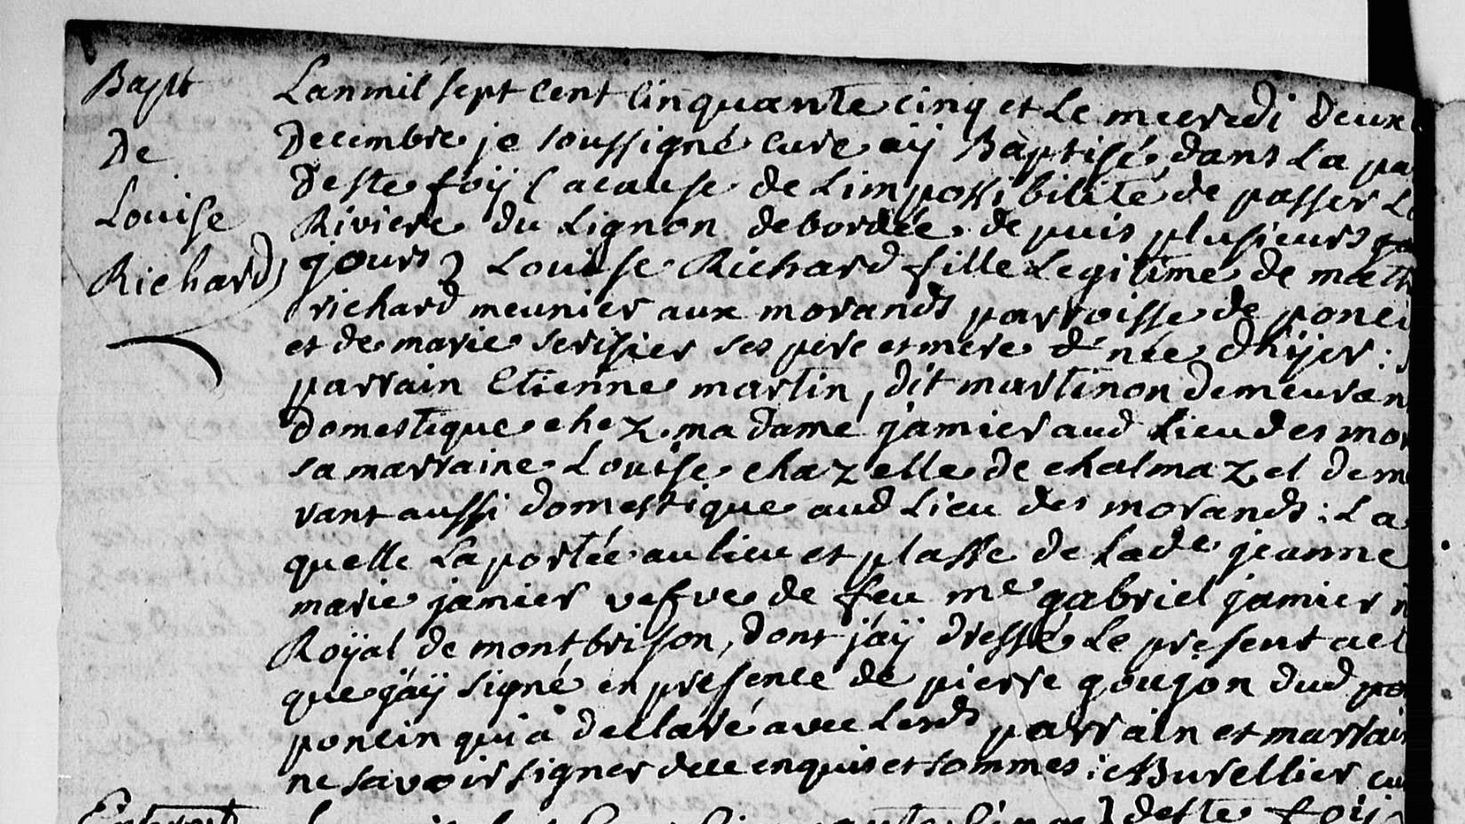 Bapt
De
Louise
Richard
Lanmil sept cent cinquante cinq et Le mecredi deux
Decembre je soussigné cure aÿ Baptisé dans La pa
Deste foÿ ( acause de Limpossibilité de passer La
Riviere du Lignon debordée de puis plusieurs
jours ) Louise Richard fille Legitime de math
richard meunier aux morands parroisse de ponci
et de marie serisier ses pere et mere & née dhÿer :
parrain Etienne martin, dit martinon demeuran
Domestique chez madame jamier aud Lieu des mor
sa marraine Louise chazelle de chalmazel dem
rant aussi domestique aud Lieu des morands : La
quelle La portée au lieu et plasse de Lade jeanne
marie jamier vefve de feu me gabriel jamier
Roÿal de montbrison, dont j'aÿ dressé Le present act
que j'aÿ signé en presence de pierre goujon dud
poncin qui a dellaré avec Lesds parrain et marrain
ne savoir signer de ce enquis et sommes : Burellier cu
Enterrt
deste foÿ